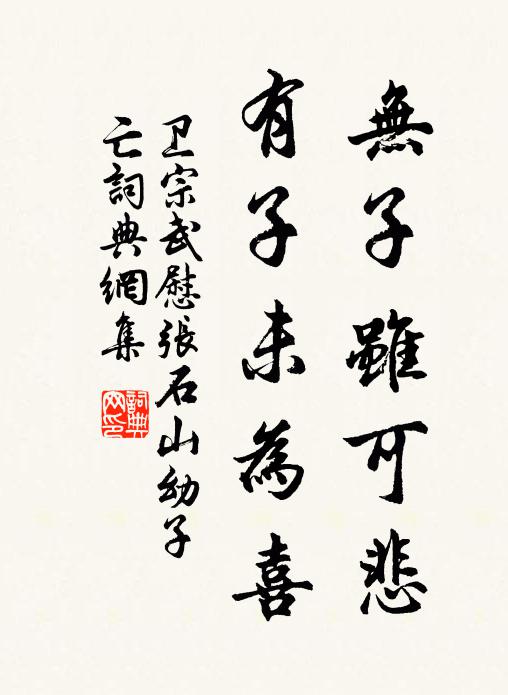 無子雖可悲
有子未為喜
卫宗武慰張石山幼子
亡詞典網集
詞典
网印